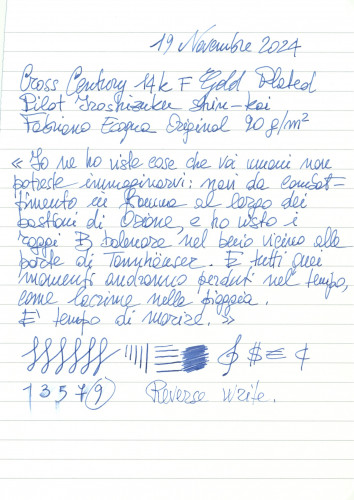 19 Novembre 2024
Cross Century 14k F Gold Plated
Pilot Iroshizuku shin-kai
Fabriano Ecoqua Original 90 g/m²
« Io ne ho viste cose che voi umani non
potreste immaginarvi: navi da combat-
timento in fiamme al largo dei
bastioni di Orione, e ho visto i
raggi B balenare nel buio vicino alle
porte di Tannhäuser. E tutti quei
momenti andranno perduti nel tempo,
come lacrime nella pioggia.
E' tempo di morire. »
$ € ¢
1 3 5 7 9 Reverse write.